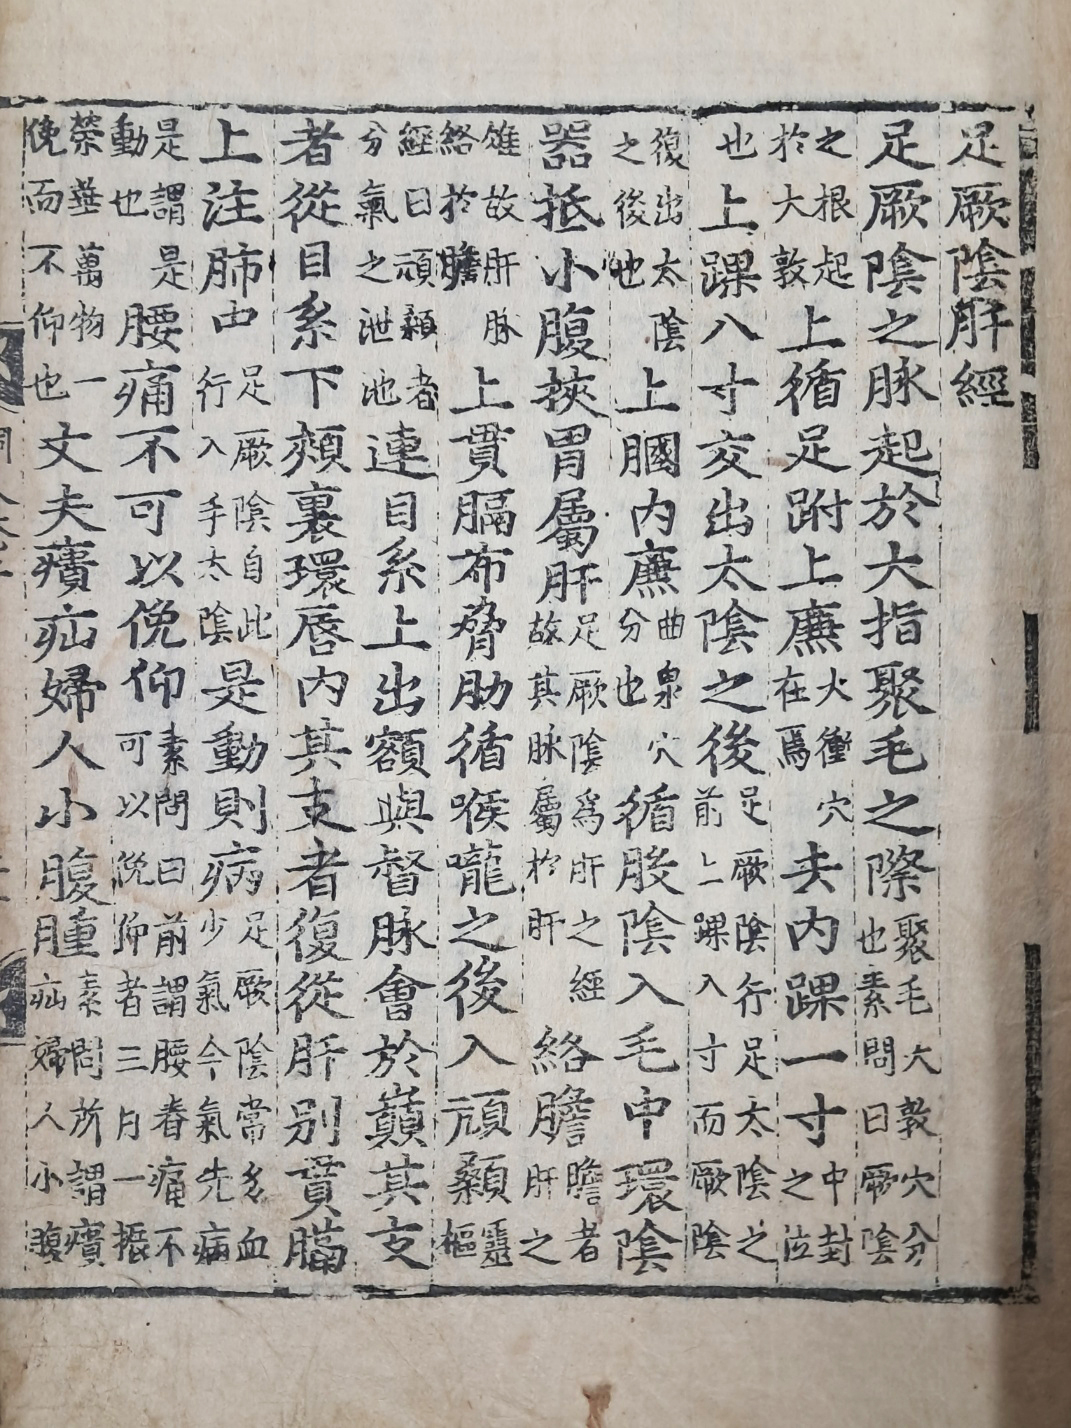 足厥陰肝經
足厥陰之脉起於大指聚毛之際聚毛大敦穴分也素問曰厥陰
之根起於大敦上循足跗上廉大衝穴在焉去內踝一寸中封之位
也上踝八寸交出太陰之後足厥陰行足太陰之前上踝八寸而厥陰
復出太陰之後也上膕內廉曲泉穴分也循股陰入毛中環陰
器抵小腹挾胃屬肝足厥陰爲肝之經故其脉屬於肝絡膽膽者肝之
雄故肝脉絡於膽上貫膈布脅肋循喉嚨之後入頏顙靈樞
經曰頏顙者分氣之泄池連目系上出額與督脉會於巔其支
者從目系下頰裏環唇內其支者復從肝別貫膈
上注肺中足厥陰自此行入手太陰是動則病足厥陰常多血少氣今氣先病
是謂是動也腰痛不可以俛仰素問曰前謂腰脊痛不可以俛仰者三月一振
榮華萬物一俛而不仰也丈夫㿉疝婦人小腹腫素問所謂㿉疝婦人小腹